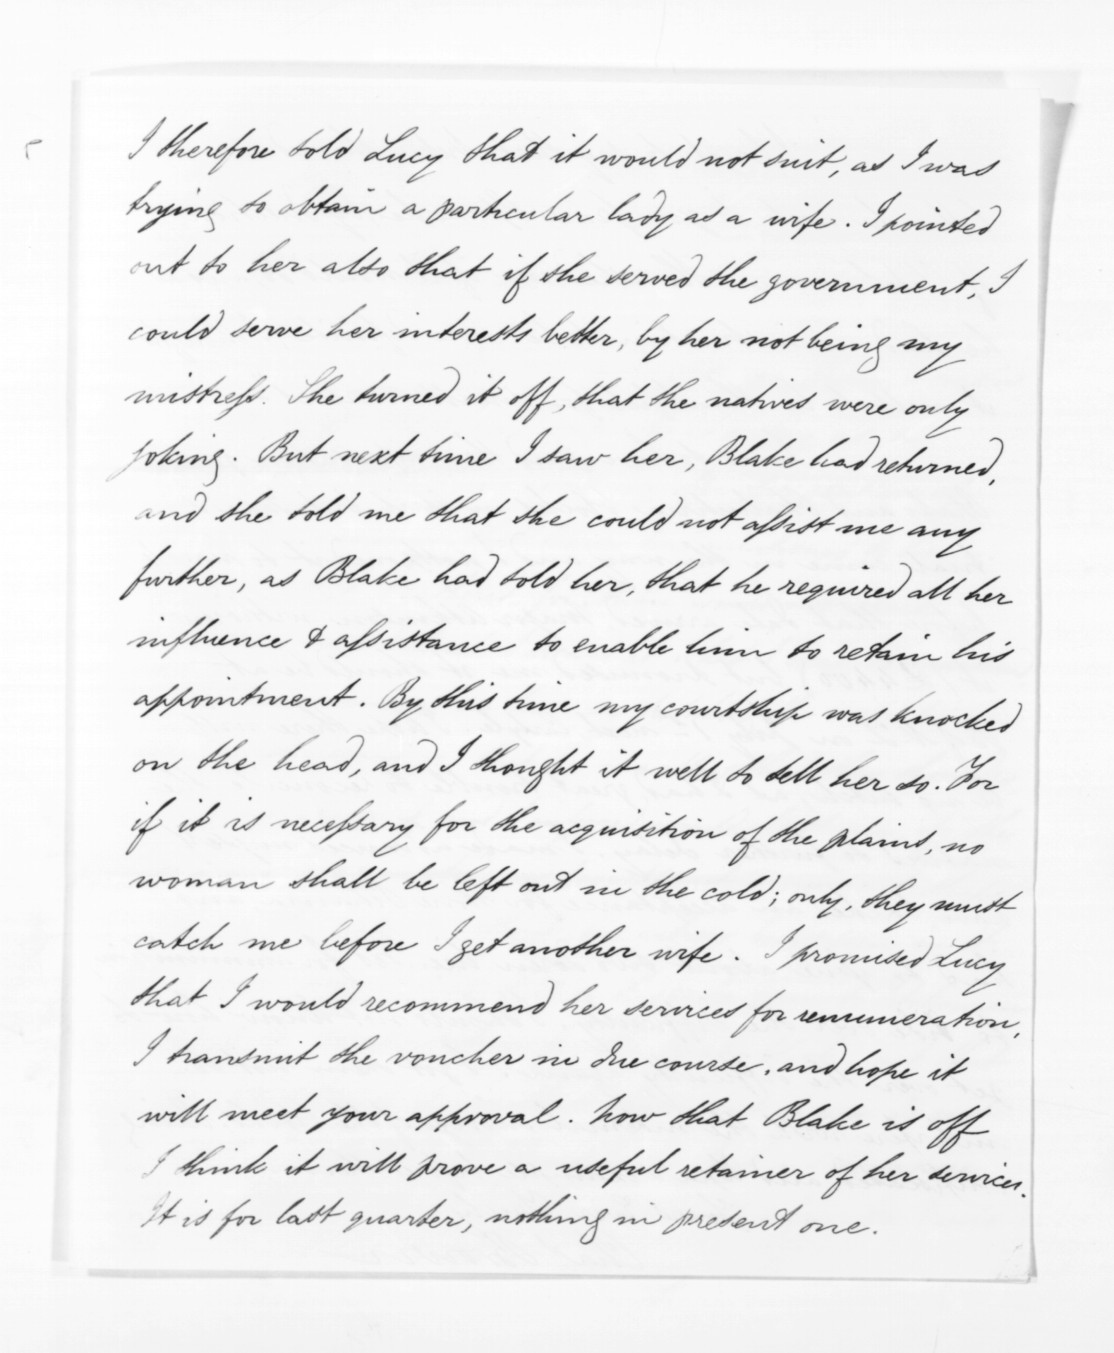 I therefore told Lucy that it would not suit, as I was
trying to obtain a particular lady as a wife. I pointed
out to her also that if she served the government, I
could serve her interests better, by her not being my
mistress. She turned it off, that the natives were only
joking. But next time I saw her, Blake had returned,
and she told me that she could not assist me any
further, as Blake had told her, that he required all her
influence & assistance to enable him to retain his
appointment. By this time my courtship was knocked
on the head, and I thought it well to tell her so. For
if it is necessary for the acquisition of the plains, no
woman shall be left out in the cold; only, they must
catch me before I get another wife. I promised Lucy
that I would recommend her services for remuneration,
I transmit the voucher in due course, and hope it
will meet your approval. Now that Blake is off
I think it will prove a useful retainer of her services.
It is for last quarter, nothing in present one.